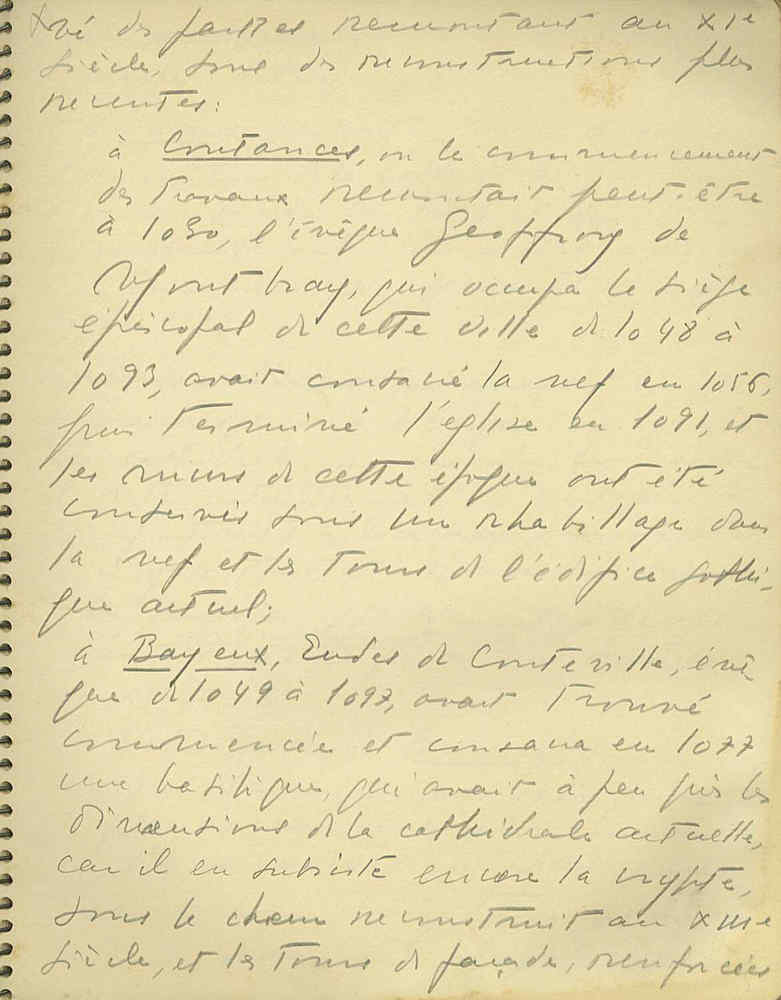 vé des parties remontant au XIe
siècle, sous des reconstructions plus
récentes:
à Coutances, où le commencement
des travaux remontait peut-être
à 1030, l'évêque Geoffroy de
Montbray, qui occupa le siège
épiscopal de cette ville de 1048 à
1093, avait consacré la nef en 1056,
puis terminé l'église en 1091, et
les murs de cette époque ont été
conservés sous un rhabillage dans
la nef et les tours de l'édifice gothi-
que actuel;
à Bayeux, Eudes de Conteville, évê
que de 1049 à 1097, avait trouvé
commencée et consacra en 1077
une basilique, qui avait à peu près les
dimensions de la cathédrale actuelle,
car il en subsiste encore la crypte,
sous le chœur reconstruit au XIIIe
siècle, et les tours de façade, renforcées